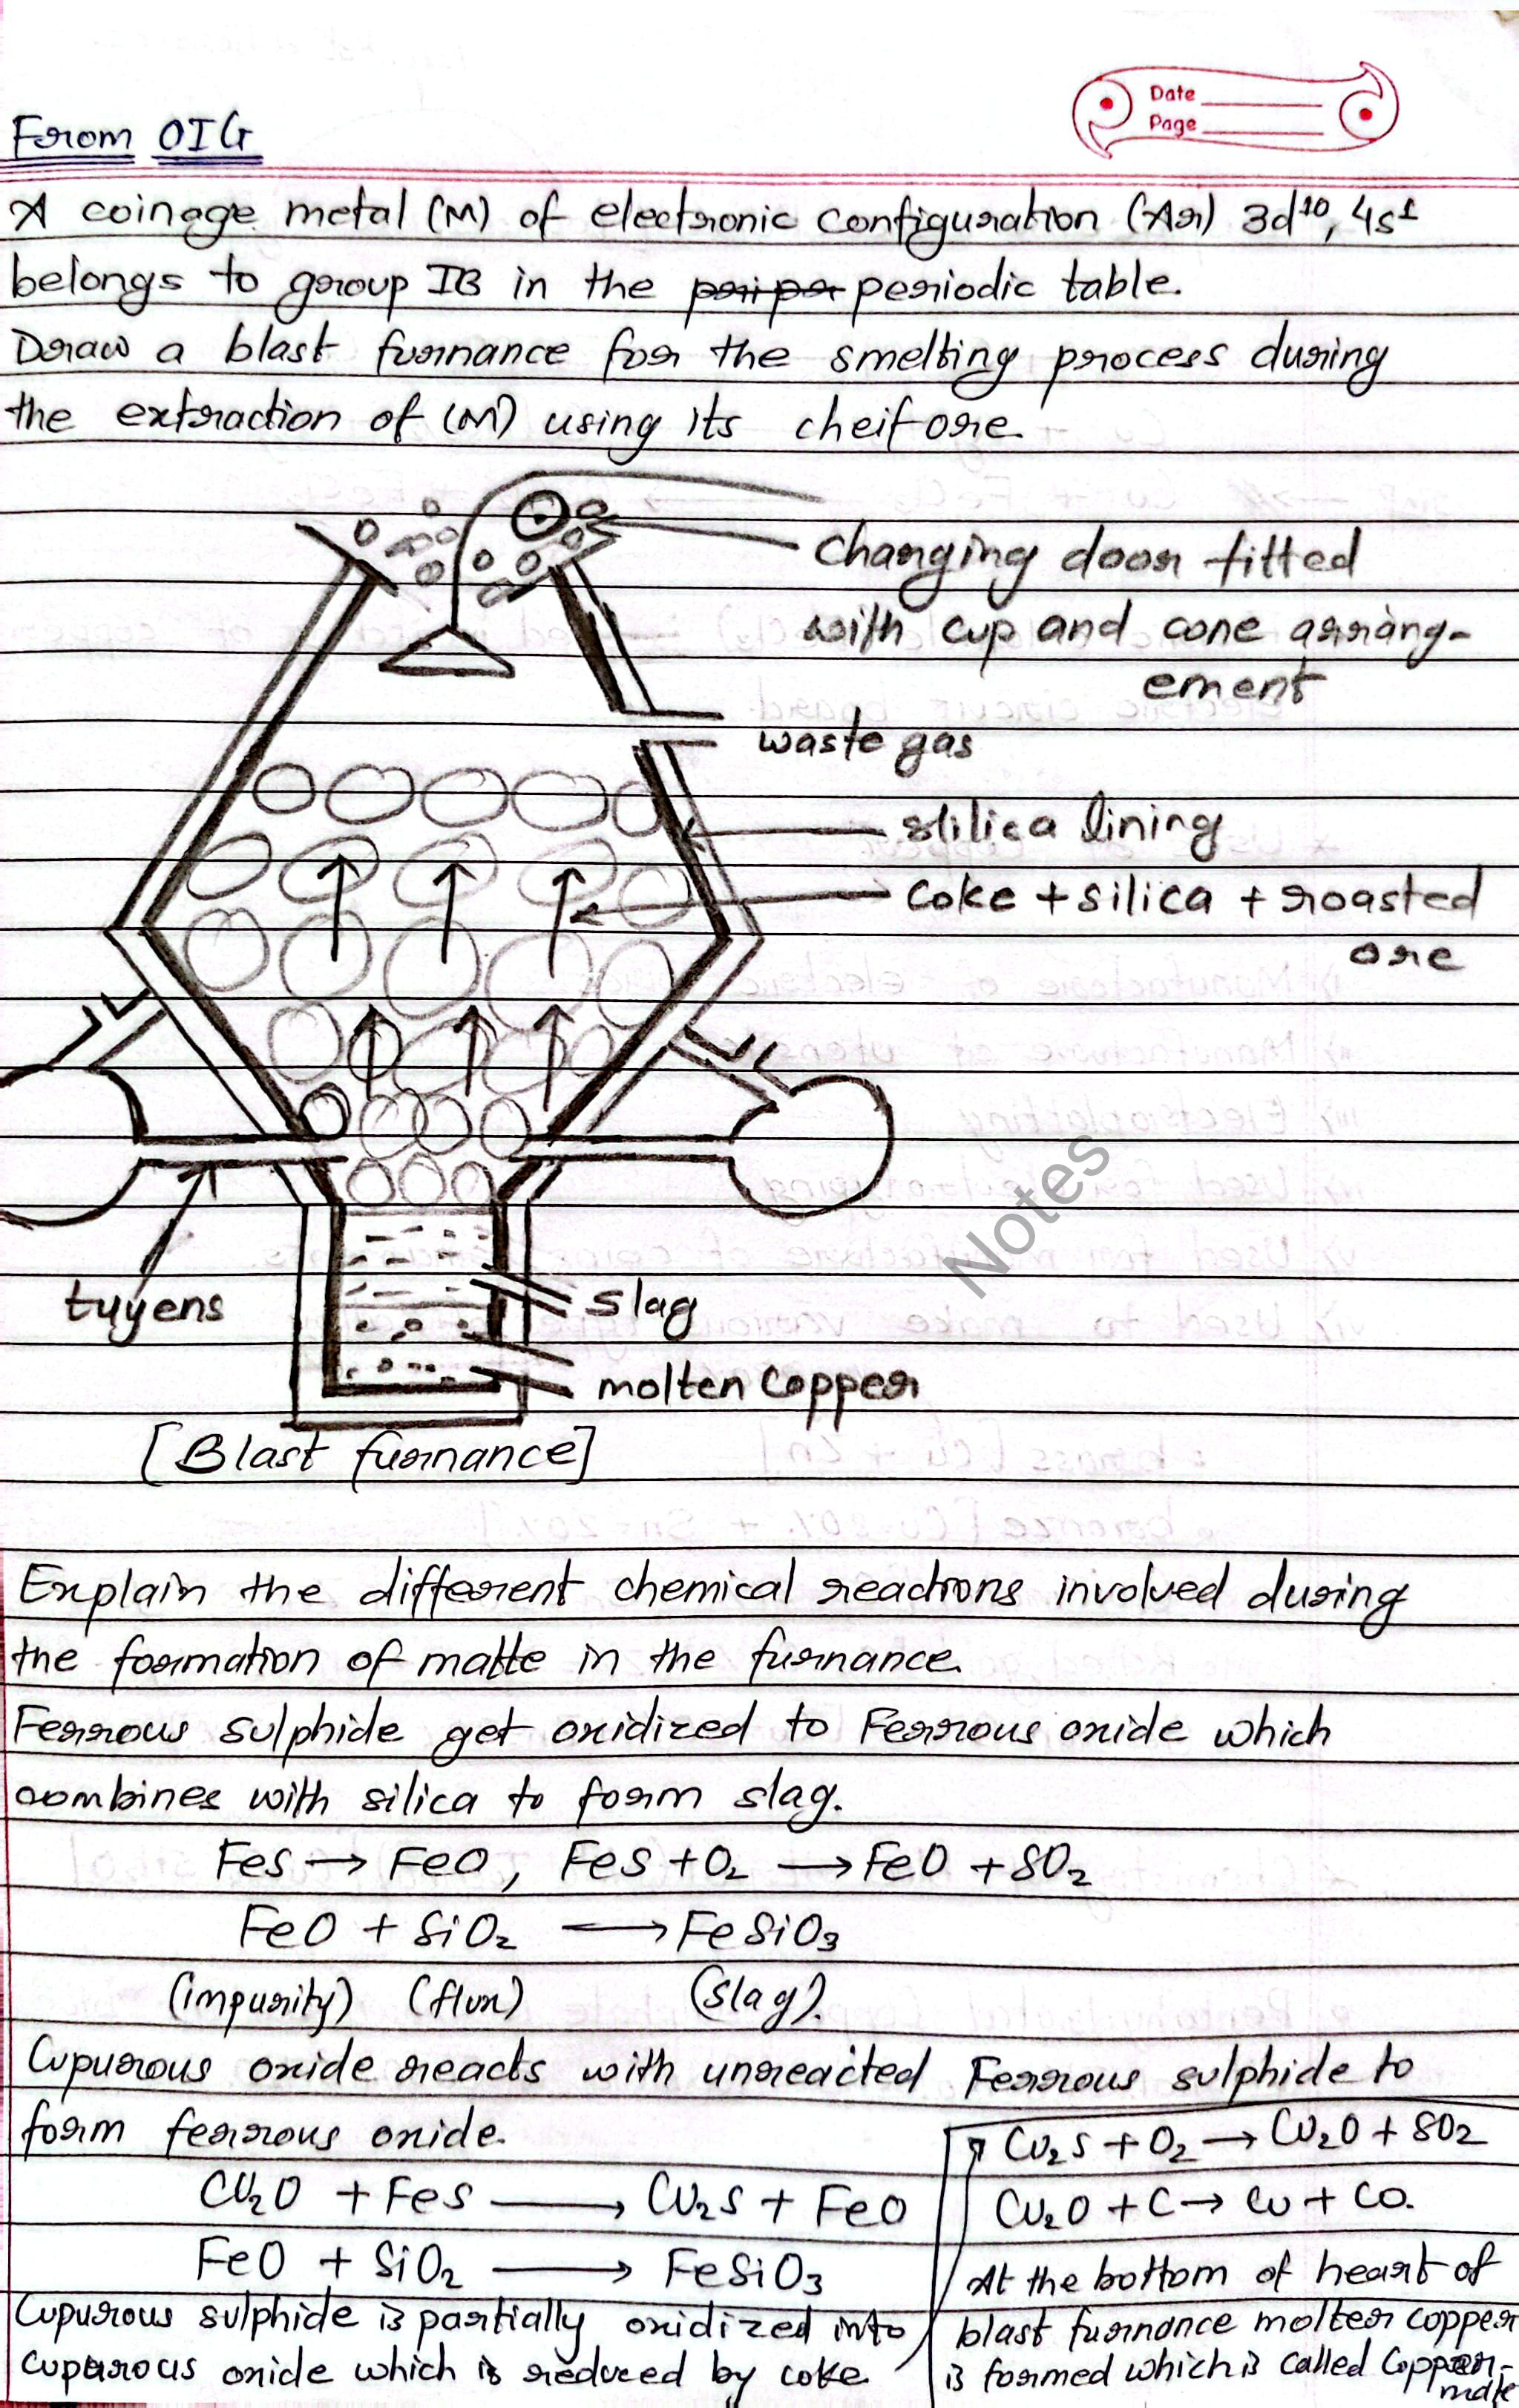 Date
Page
From OIG
A coinage metal (M) of electronic configuration (Ar) 3d¹⁰, 4s¹
belongs to group IB in the periodic table.
Draw a blast furnance for the smelting process during
the extraction of (M) using its cheif ore.
Changing door fitted
with cup and cone arrang-
ement
waste gas
slilica lining
coke + silica + roasted
ore
tuyens
slag
molten copper
[Blast furnance]
Notes
Explain the different chemical reactions involved during
the formation of matte in the furnance.
Ferrous sulphide get oxidized to Ferrous oxide which
combines with silica to form slag.
FeS → FeO, FeS + O₂ → FeO + SO₂
FeO + SiO₂ → FeSiO₃
(impurity) (flux) (slag).
Cupurous oxide reacts with unreacted Ferrous sulphide to
form ferrous oxide.
Cu₂O + FeS → Cu₂S + FeO
FeO + SiO₂ → FeSiO₃
Cupurous sulphide is partially oxidized into
cupurous oxide which is reduced by coke.
Cu₂S + O₂ → Cu₂O + SO₂
Cu₂O + C → Cu + CO.
At the bottom of heart of
blast furnance molten copper
is formed which is called Copper-
matte